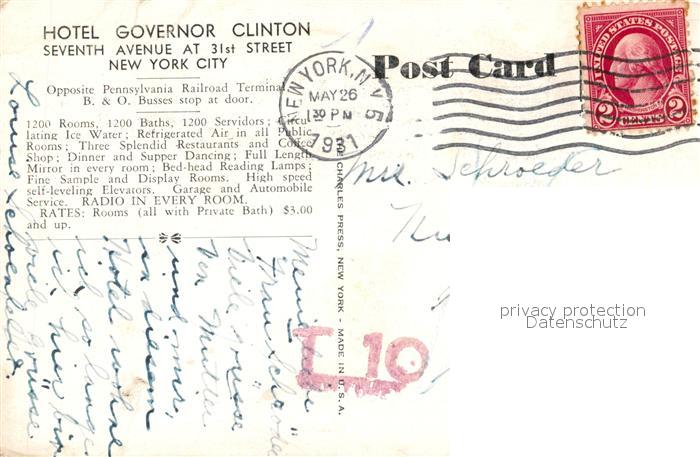 HOTEL GOVERNOR CLINTON
SEVENTH AVENUE AT 31st STREET
NEW YORK CITY
Opposite Pennsylvania Railroad Terminal
B. & O. Busses stop at door.
1200 Rooms, 1200 Baths, 1200 Servidors; Circu
lating Ice Water; Refrigerated Air in all Public
Rooms; Three Splendid Restaurants and Coffee
Shop; Dinner and Supper Dancing; Full Length
Mirror in every room; Bed-head Reading Lamps;
Fine Sample and Display Rooms. High speed
self-leveling Elevators. Garage and Automobile
Service. RADIO IN EVERY ROOM.
RATES: Rooms (all with Private Bath) $3.00
and up.
Post Card
NEW YORK, N.Y. 5
MAY 26
1 30 PM
1931
UNITED STATES POSTAGE
2 CENTS 2
Schroeder
CHARLES PRESS, NEW YORK - MADE IN U.S.A.
T 10
Meine liebe
Frau Schroeder
Viele Grüsse
von Mutter
und mir,
in diesem
Hotel wohne
ich so lange
ich hier bin
Viele Grüsse
Louise
privacy protection
Datenschutz